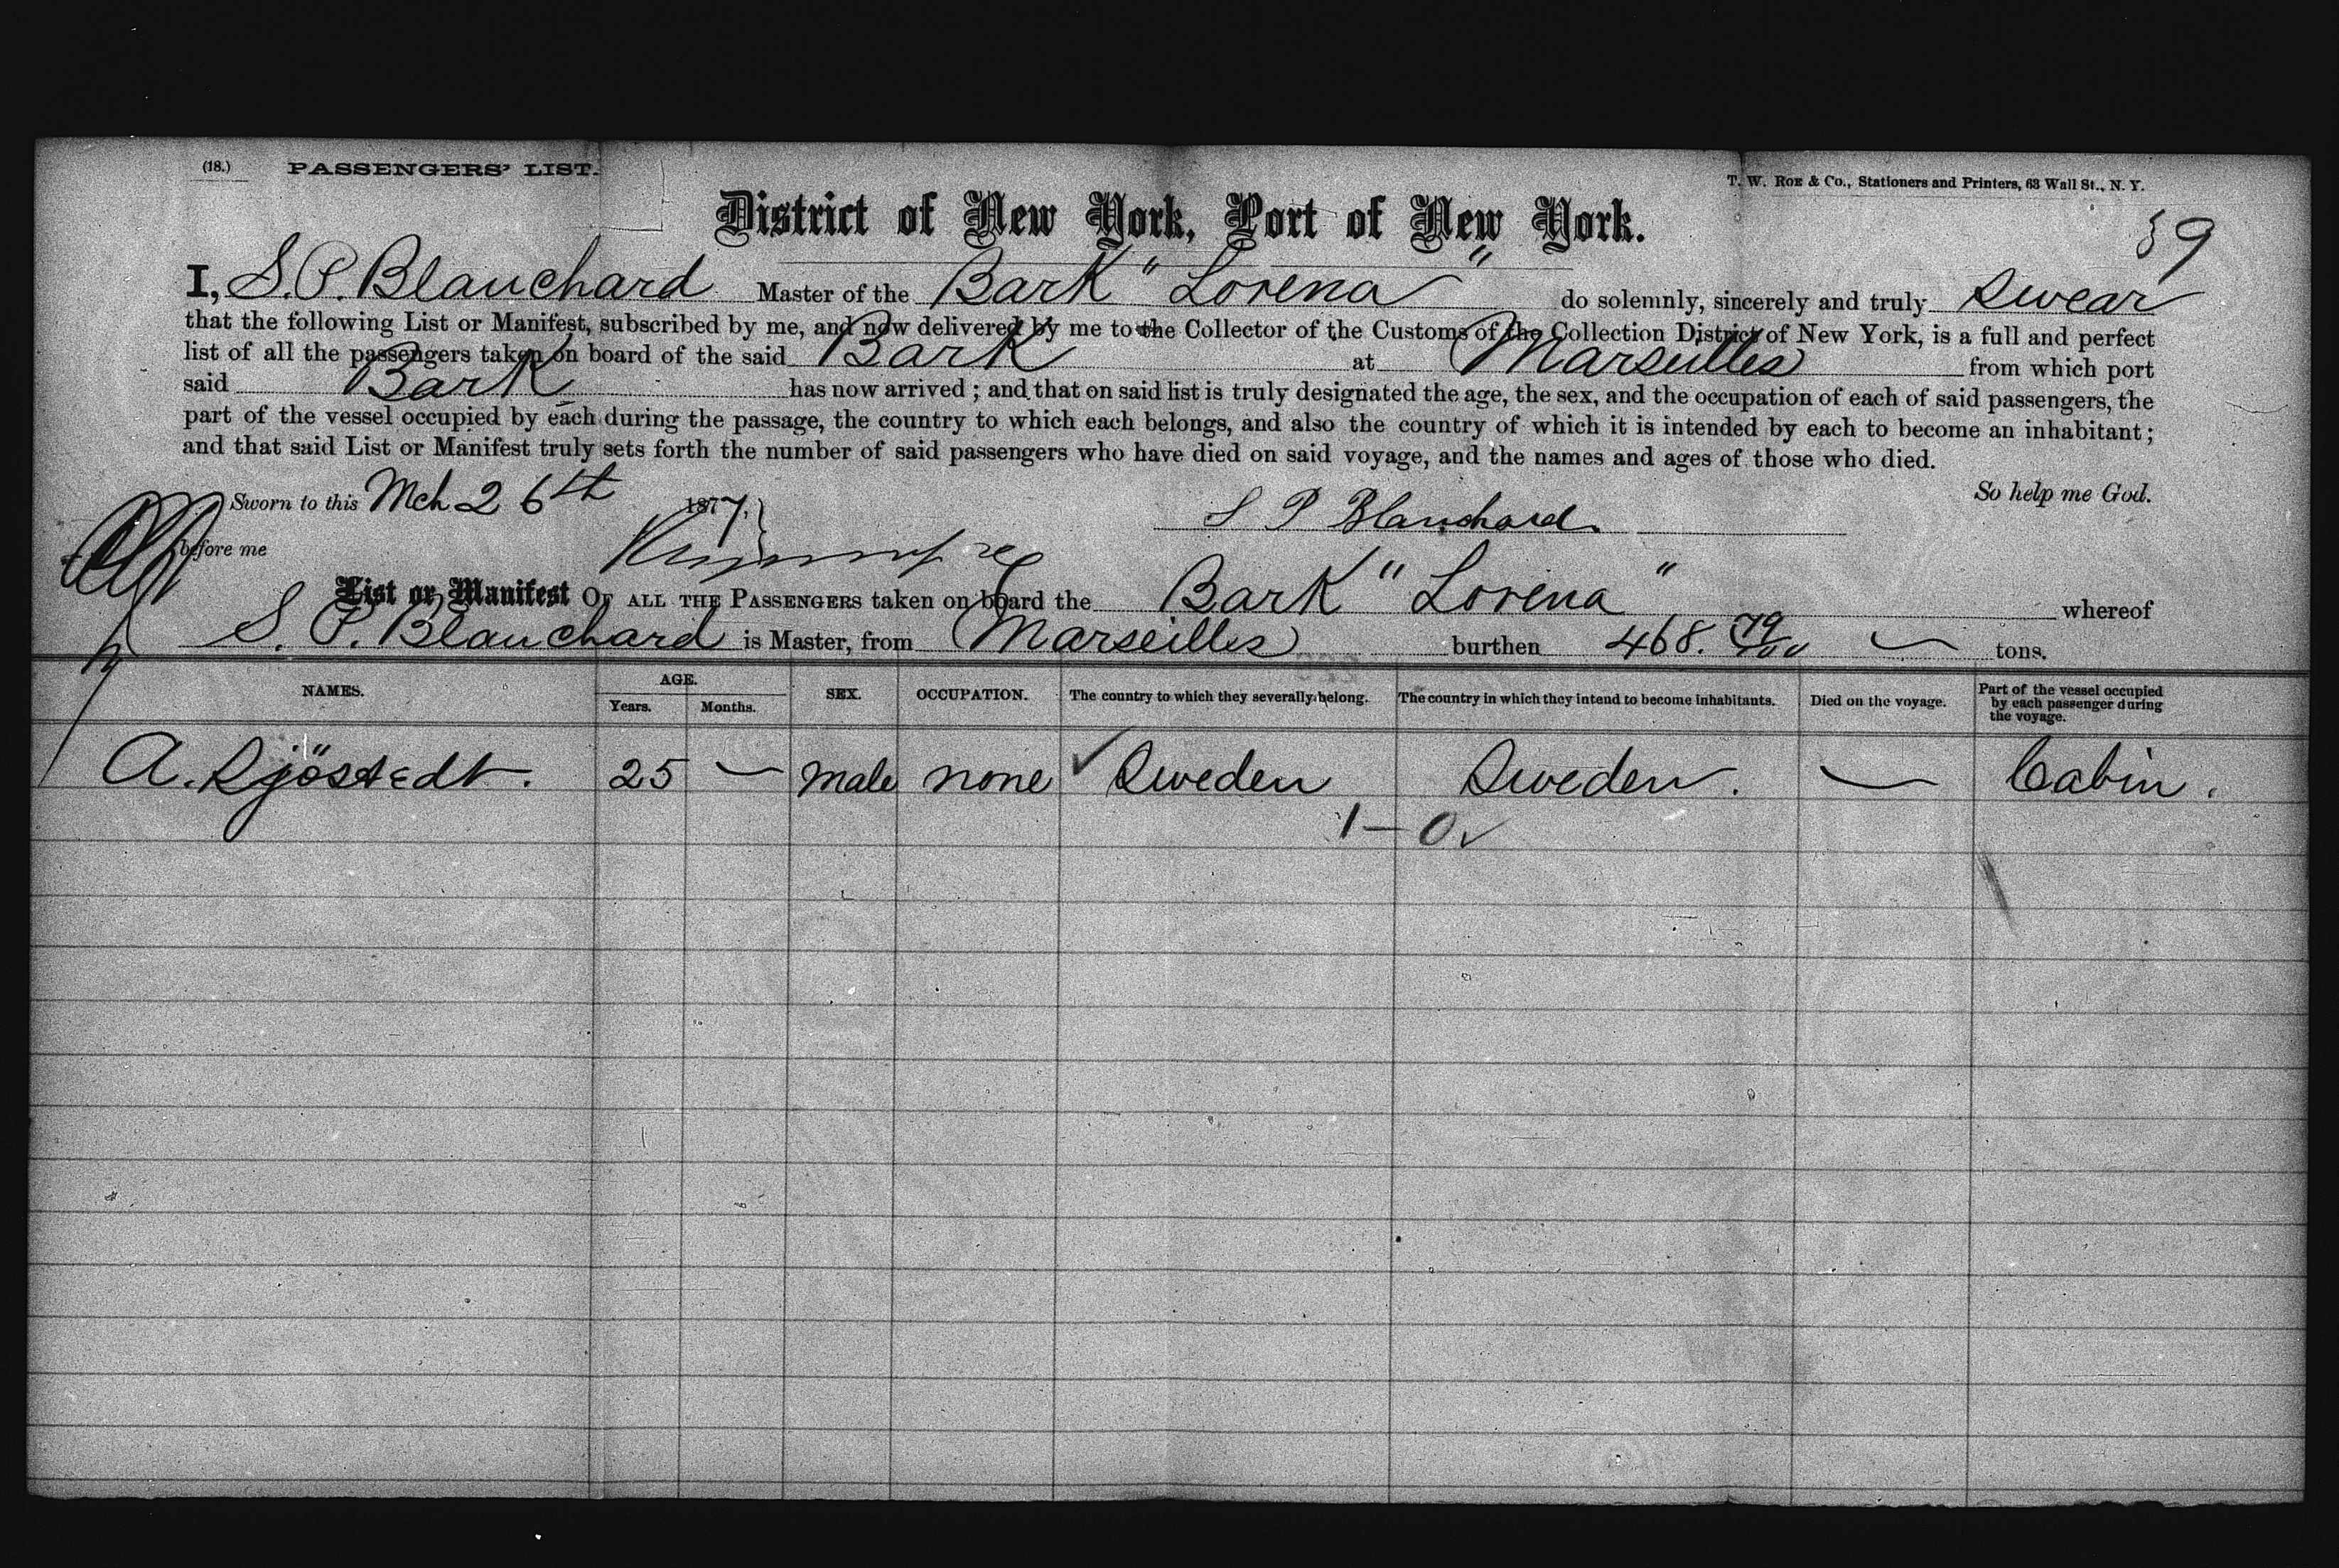 (18.) PASSENGERS' LIST.
T. W. ROE & CO., Stationers and Printers, 63 Wall St., N. Y.
District of New York, Port of New York.
59
I, S. P. Blanchard Master of the Bark "Lorena" do solemnly, sincerely and truly swear
that the following List or Manifest, subscribed by me, and now delivered by me to the Collector of the Customs of the Collection District of New York, is a full and perfect
list of all the passengers taken on board of the said Bark at Marseilles from which port
said Bark has now arrived; and that on said list is truly designated the age, the sex, and the occupation of each of said passengers, the
part of the vessel occupied by each during the passage, the country to which each belongs, and also the country of which it is intended by each to become an inhabitant;
and that said List or Manifest truly sets forth the number of said passengers who have died on said voyage, and the names and ages of those who died.
So help me God.
Sworn to this Mch 26th 1877.
S P Blanchard.
before me
List or Manifest OF ALL THE PASSENGERS taken on board the Bark "Lorena" whereof
S. P. Blanchard is Master, from Marseilles burthen 468. 79/100 tons.
NAMES. AGE. Years. Months. SEX. OCCUPATION. The country to which they severally belong. The country in which they intend to become inhabitants. Died on the voyage. Part of the vessel occupied by each passenger during the voyage.
A. Sjöstedt. 25 — male none ✓ Sweden Sweden. — Cabin.
1 — 0 ✓